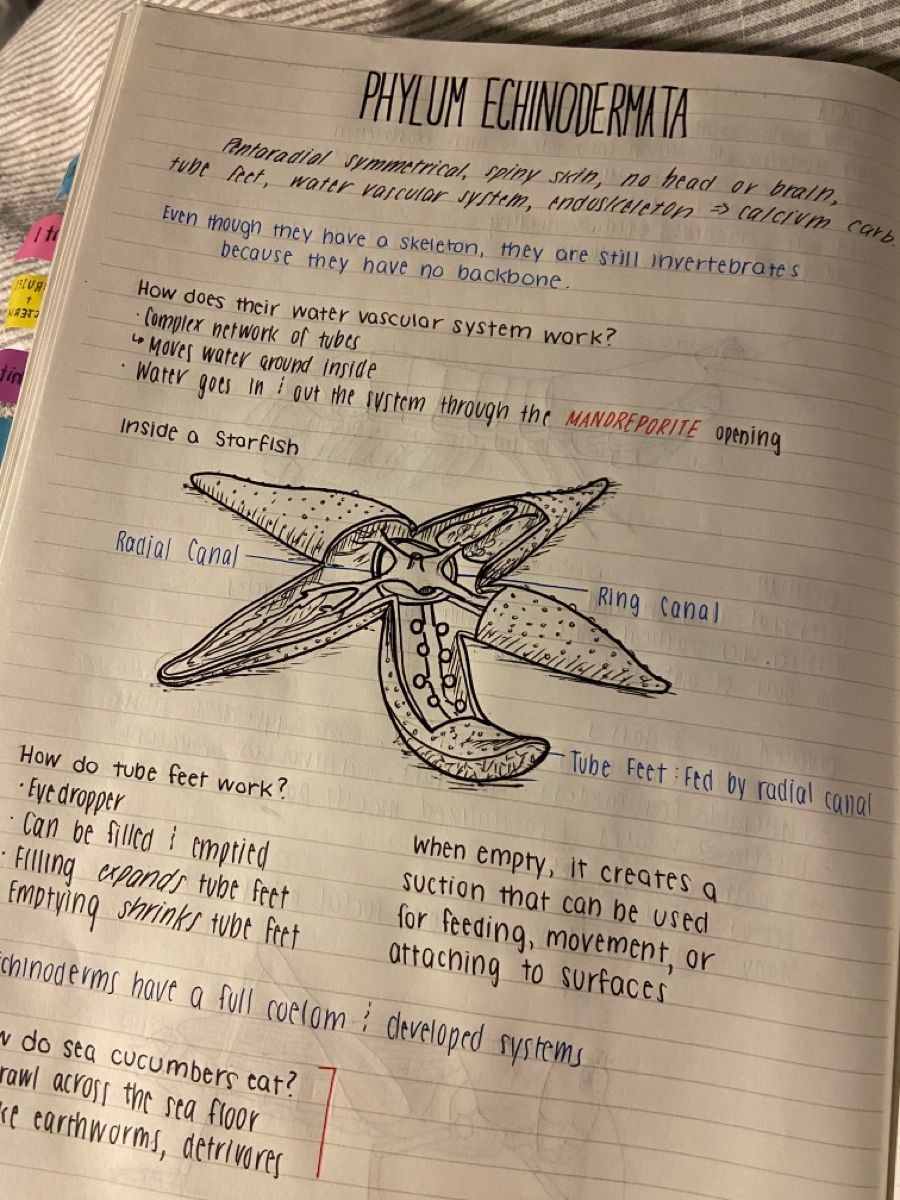 PHYLUM ECHINODERMATA
Pentaradial symmetrical, spiny skin, no head or brain,
tube feet, water vascular system, endoskeleton ⇒ calcium carb.
Even though they have a skeleton, they are still invertebrates
because they have no backbone.
How does their water vascular system work?
· Complex network of tubes
↳ Moves water around inside
· Water goes in & out the system through the MANDREPORITE opening
Inside a Starfish
Radial Canal
Ring Canal
Tube Feet: Fed by radial canal
How do tube feet work?
· Eyedropper
· Can be filled & emptied
· Filling expands tube feet
Emptying shrinks tube feet
When empty, it creates a
suction that can be used
for feeding, movement, or
attaching to surfaces
chinoderms have a full coelom & developed systems
w do sea cucumbers eat?
rawl across the sea floor
ke earthworms, detrivores